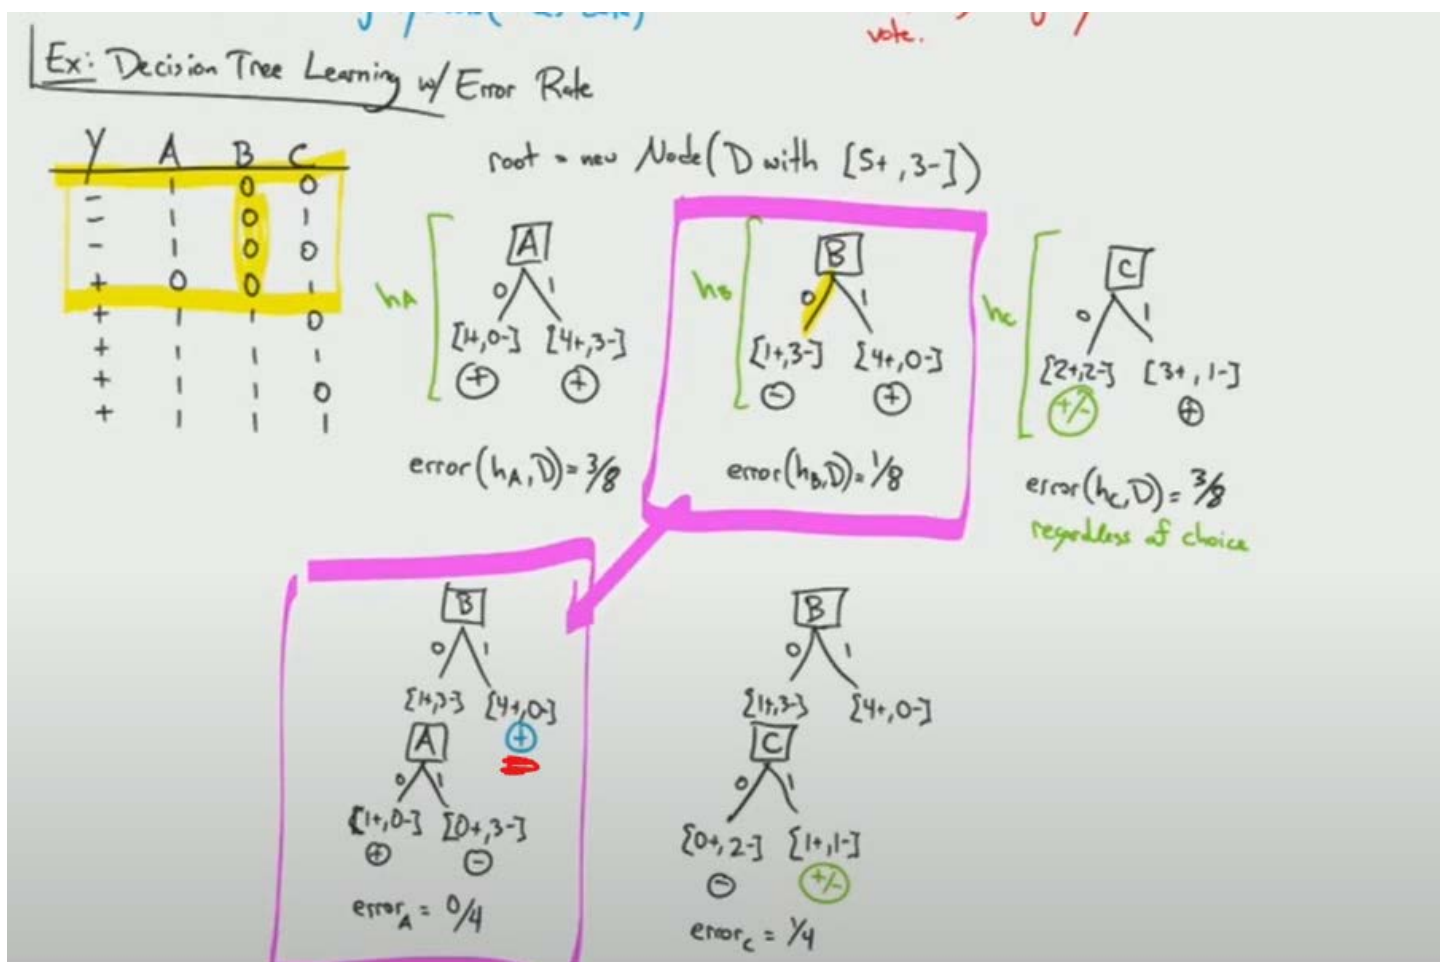 vote.
Ex: Decision Tree Learning w/ Error Rate
Y A B C
- 1 0 0
- 1 0 1
- 1 0 0
+ 0 0 1
+ 1 1 0
+ 1 1 1
+ 1 1 0
+ 1 1 1
root = new Node(D with [5+, 3-])
hA
A
0 1
[1+,0-] [4+,3-]
+ +
error(hA, D) = 3/8
hB
B
0 1
[1+,3-] [4+,0-]
- +
error(hB,D) = 1/8
hC
C
0 1
[2+,2-] [3+, 1-]
+/- +
error(hC, D) = 3/8
regardless of choice
B
0 1
[1+,3-] [4+,0-]
+
A
0 1
[1+,0-] [0+,3-]
+ -
errorA = 0/4
B
0 1
[1+,3-] [4+,0-]
C
0 1
[0+,2-] [1+,1-]
- +/-
errorC = 1/4